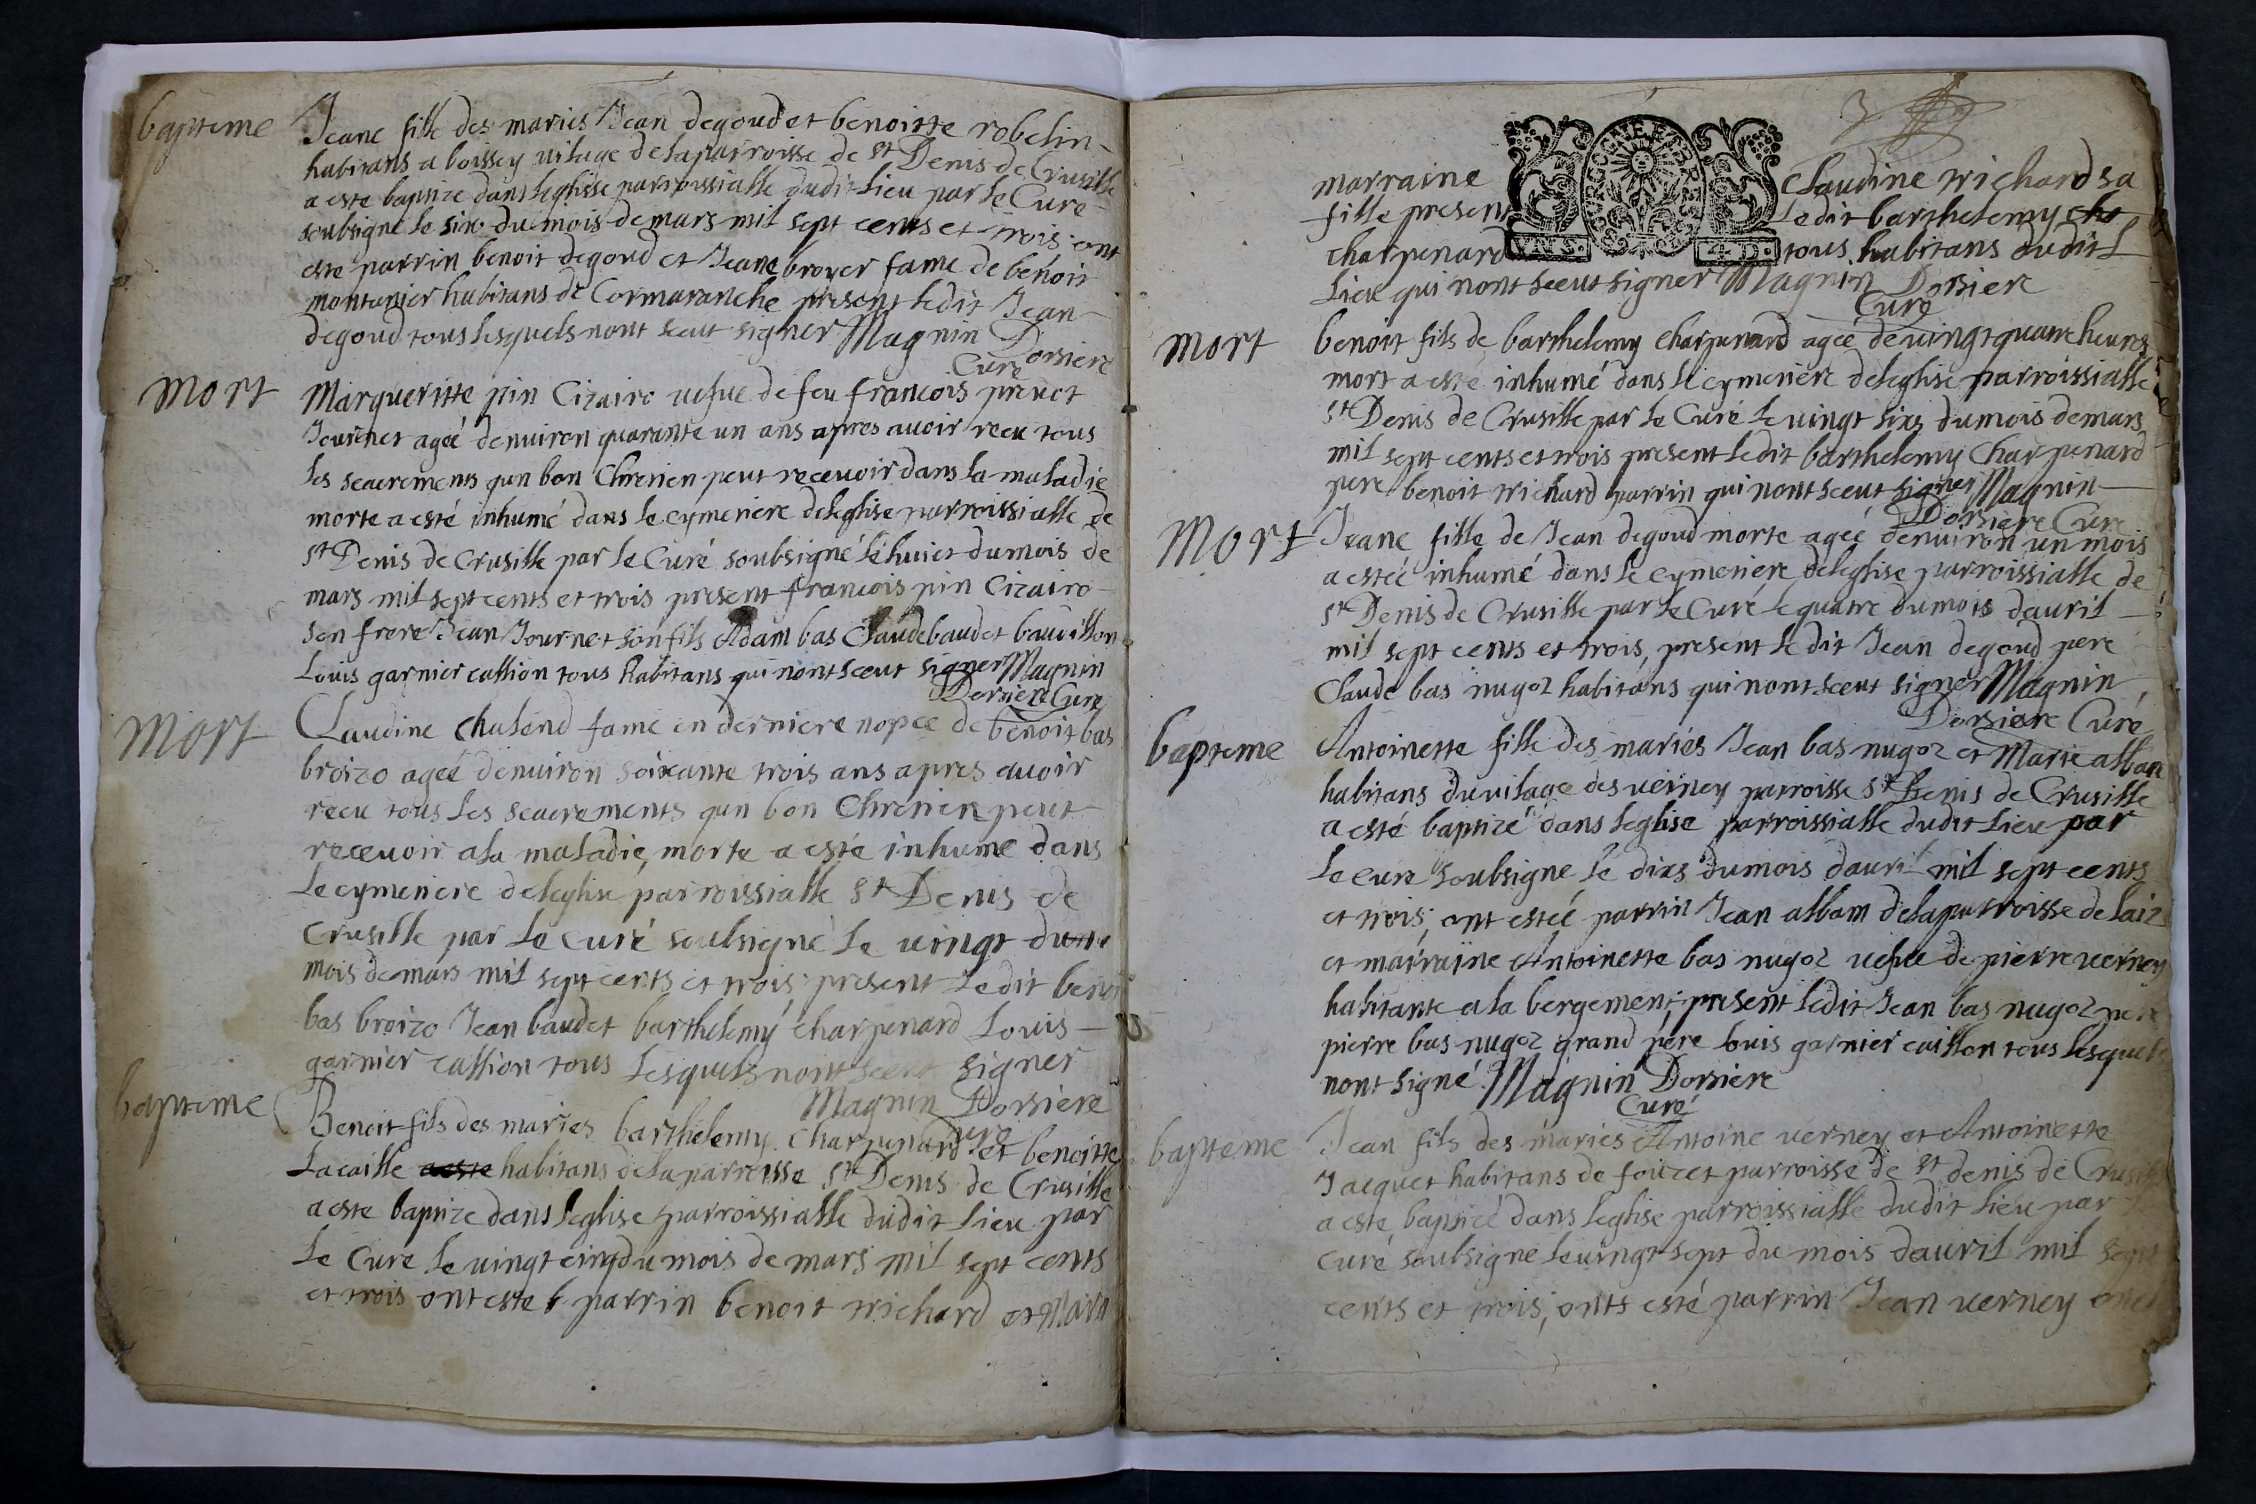 bapteme
Jeane fille des mariés Jean degoud et benoitte robelin
habitans a boissey uilage de la parroisse de st Denis de Crusille
a este baptize dans leglise parroissialle dudit Lieu par le Curé
soubsigné le six du mois de mars mil sept cents et trois ont
este parrin benoit degoud et Jeane broyer fame de benoit
montanier habitans de Cormaranche present ledit Jean
degoud tous lesquels nont sceut signer Magnin Dorsiere
Curé
mort
Margueritte pin Cizairo uefue de feu francois preuot
Journet ageé denuiron quarante un ans apres auoir receu tous
les seacrements qun bon Chretien peut receuoir dans la maladie
morte a esté inhumé dans le cymetiere deleglise parroissialle de
st Denis de Crusille par le Curé soubsigné le huict du mois de
mars mil sept cents et trois present francois pin Cizairo
son frere Jean Journet son fils Adam bas Claude baudet bauillon
Louis garnier cassion tous habitans qui nont sceut signer Magnin
Dorsiere Curé
Mort
Claudine chaland fame en derniere nopce de benoit bas
broizo ageé denuiron soixante trois ans apres auoir
receu tous les seacrements qun bon Chretien peut
receuoir a la maladie, morte a esté inhume dans
le cymetiere de leglise parroissialle st Denis de
Crusille par le curé soubsigné le uingt du
mois de mars mil sept cents et trois present ledit benoit
bas broizo Jean baudet barthelemy charpenard Louis
garnier cassion tous lesquels nont sceut signer
Magnin Dorsiere
Curé
bapteme
Benoit fils des mariés barthelemy Charpenard et benoitte
Lacaille a este habitans de la parroisse st Denis de Crusille
a este baptize dans leglise parroissialle dudit Lieu par
le Curé le uingt cinq du mois de mars mil sept cents
et trois ont este parrin benoit trichard et Mara
3
marraine Claudine trichard sa
fille present ledit barthelemy cha
charpenard tous habitans dudit L
Lieu qui nont sceut signer Magnin Dorsiere
Curé
mort
benoit fils de barthelemy charpenard ageé de uingt quatre heures
mort a esté inhumé dans le cymetiere deleglise parroissialle
st Denis de Crusille par le Curé le uingt sixs du mois de mars
mil sept cents et trois present ledit barthelemy Charpenard
pere benoit trichard parrin qui nont sceut signer Magnin
Dorsiere Curé
Mort
Jeane fille de Jean degoud morte ageé denuiron un mois
a esteé inhumé dans le cymetiere deleglise parroissialle de
st Denis de Crusille par le Curé le quatre du mois dauril
mil sept cents et trois, present ledit Jean degoud pere
Claude bas nugoz habitans qui nont sceut signer Magnin
Dorsiere Curé
bapteme
Antoinette fille des mariés Jean bas nugoz et Marie alban
habitans du uilage des verney parroisse st Denis de Crusille
a esté baptizé dans leglise parroissialle dudit lieu par
le curé soubsigné le dixs du mois dauril mil sept cents
et trois, ont esteé parrin Jean albam de la parroisse de laiz
et marraine Antoinette bas nugoz uefue de pierre verney
habitante a la bergement, present ledit Jean bas nugoz pere
pierre bas nugoz grand pere louis garnier caission tous lesquels
nont signé Magnin Dorsiere
Curé
bapteme
Jean fils des mariés Antoine verney et Antoinette
Jacquet habitans de fouzet parroisse de st denis de Crusille
a este baptizé dans leglise parroissialle dudit lieu par
curé soubsigne le uingt sept du mois dauril mil sept
cents et trois, onts esté parrin Jean verney